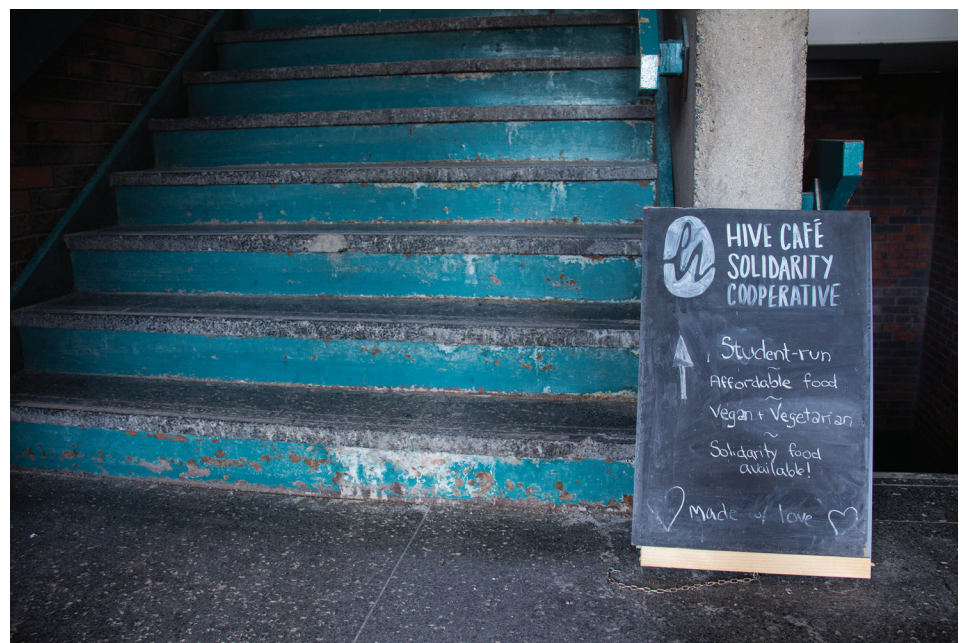 h
HIVE CAFÉ
SOLIDARITY
COOPERATIVE
Student-run
~
Affordable food
~
Vegan + Vegetarian
~
Solidarity food
available!
Made w/ love